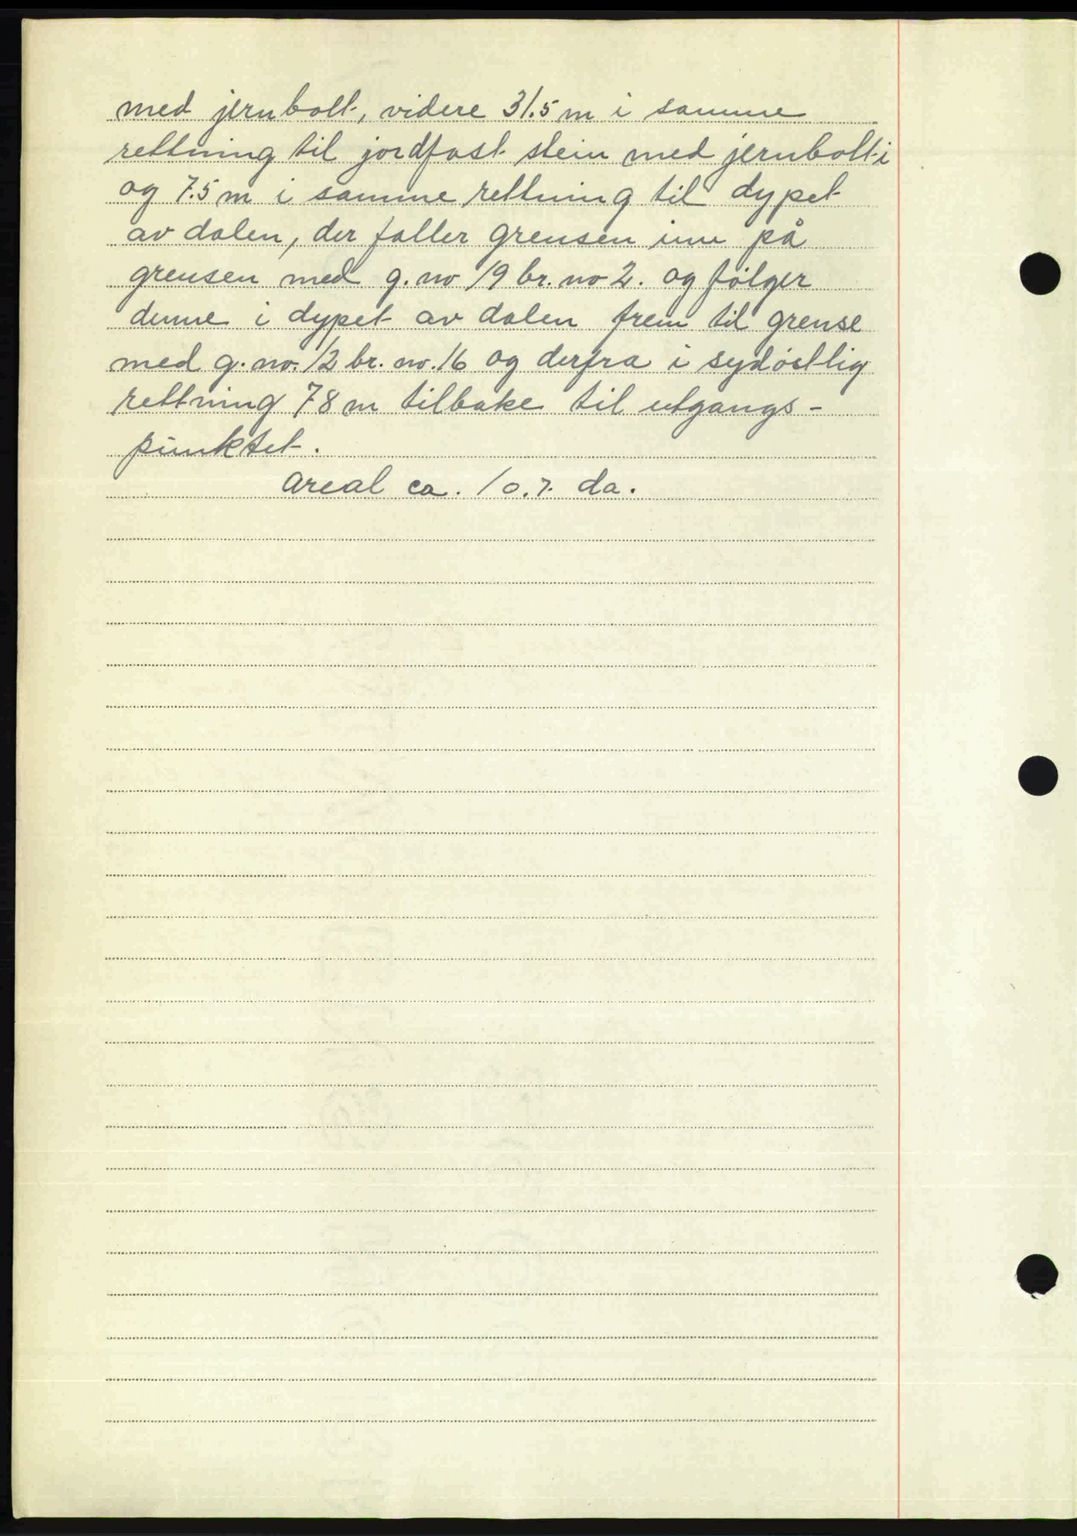 med jernbolt, videre 31.5 m i samme
rettning til jordfast stein med jernbolt i
og 7.5 m i samme rettning til dypet
av dalen, der faller grensen inn på
grensen med g. no 19 br. no 2. og følger
denne i dypet av dalen frem til grense
med g. no. 12 br. no. 16 og derfra i sydøstlig
rettning 78 m tilbake til utgangs-
punktet.
Areal ca. 10.7 da.